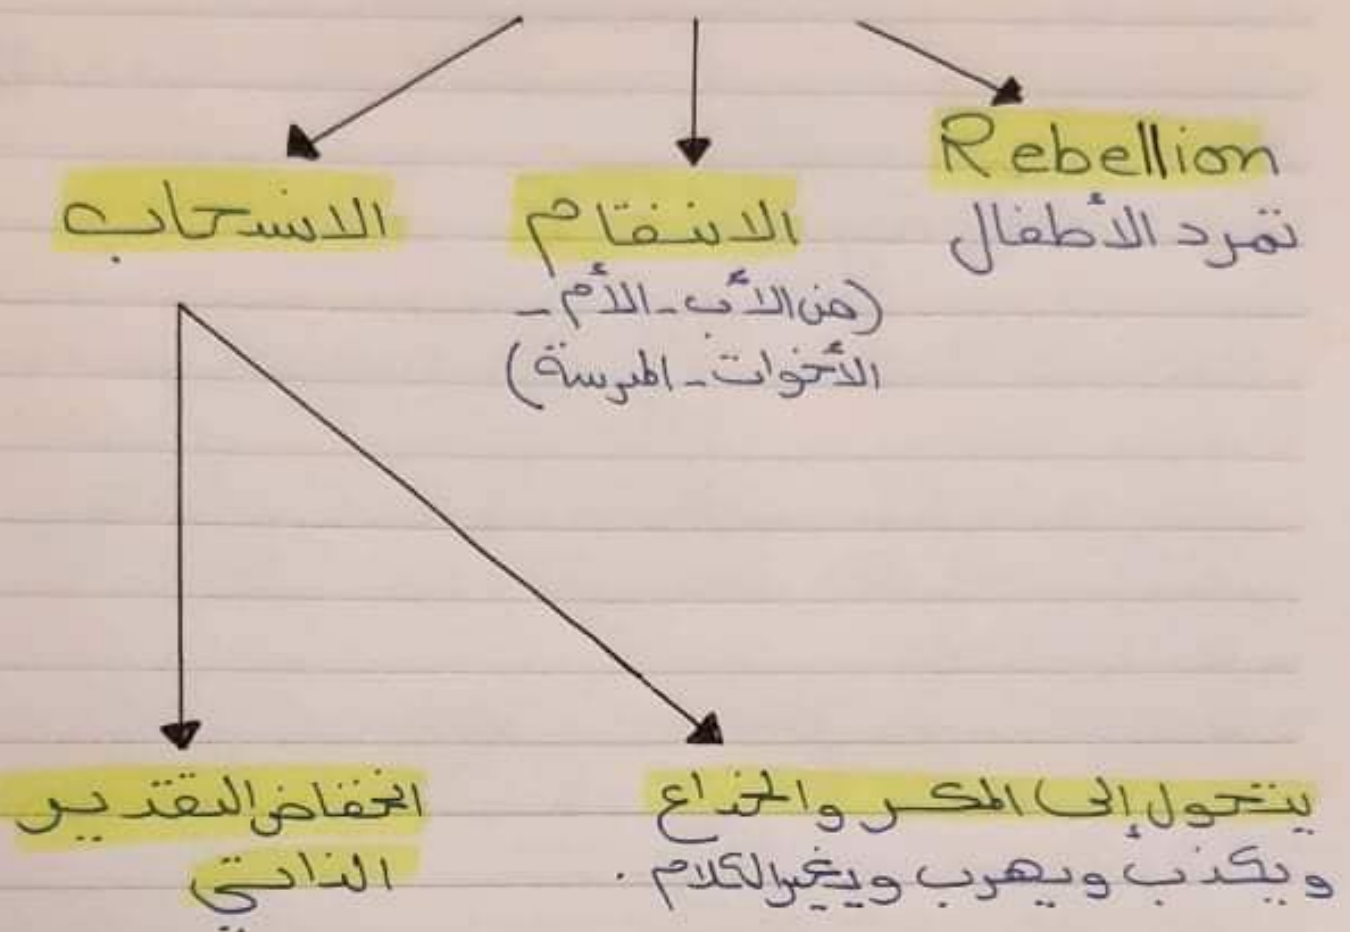 Rebellion
تمرد الأطفال
الانتقام
(من الأب - الأم -
الأخوات - المدرسة)
الانسحاب
يتحول إلى المكر والخداع
ويكذب ويهرب ويغير الكلام .
انخفاض التقدير
الذاتي